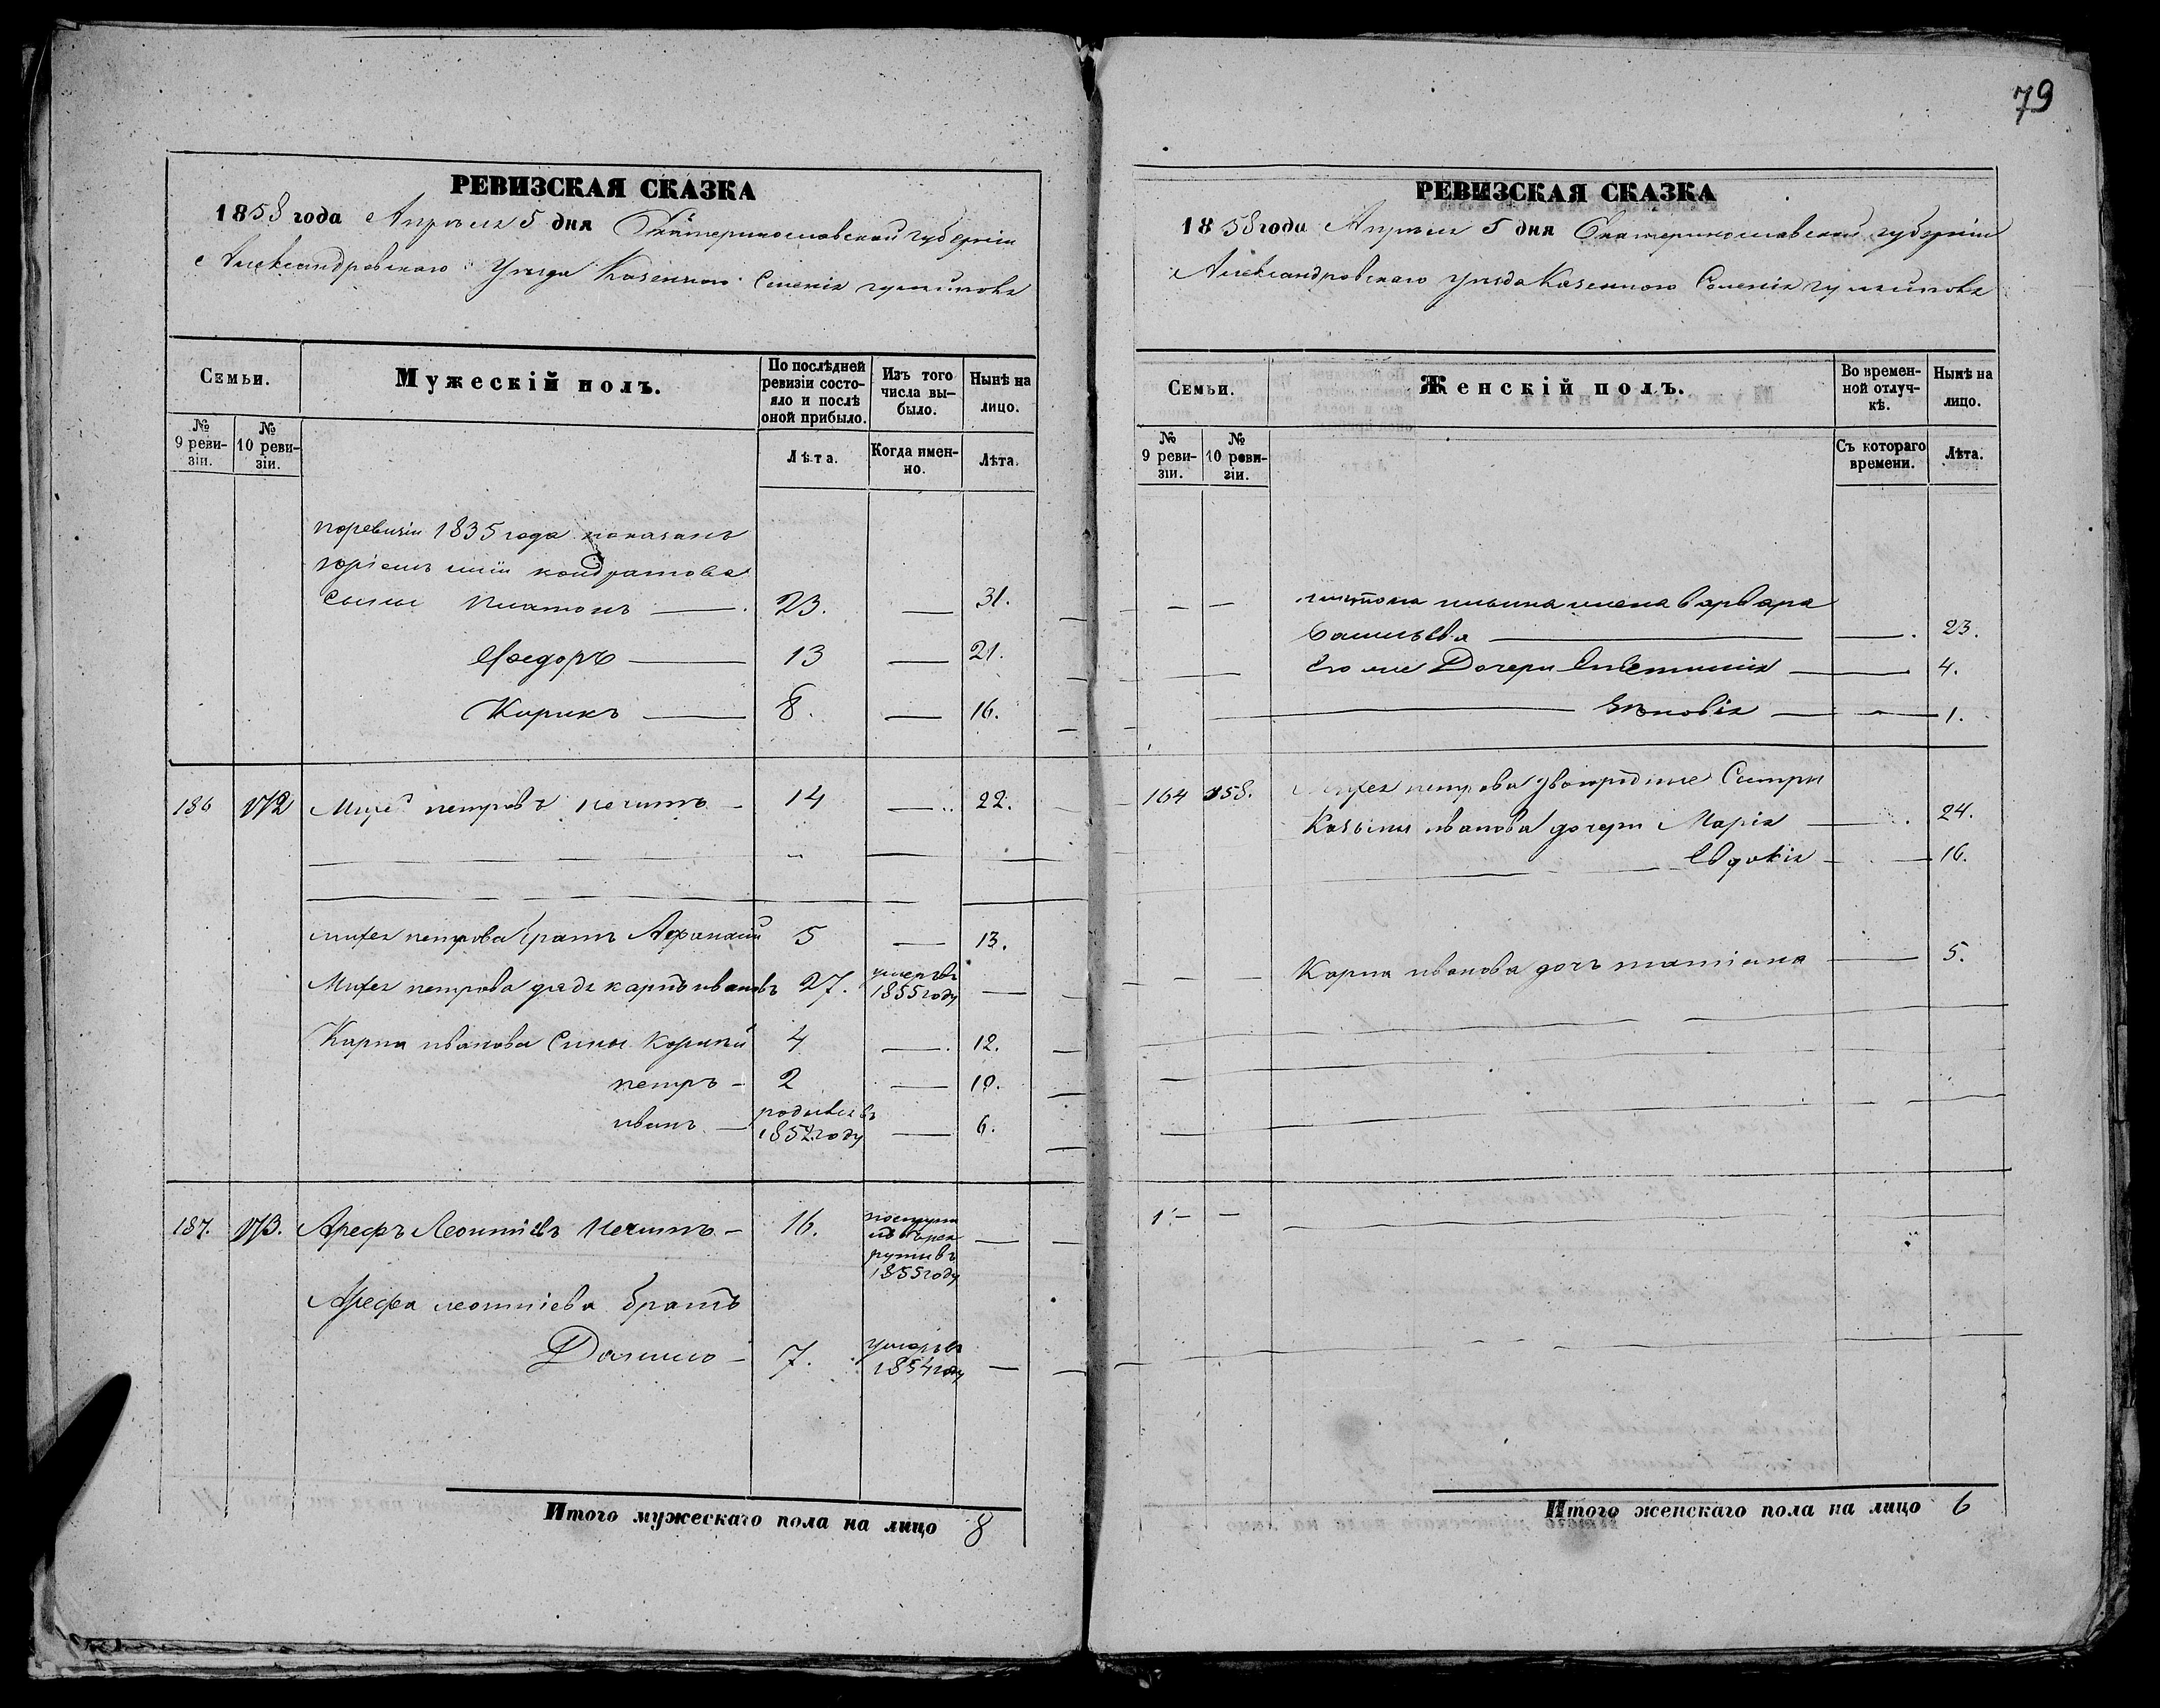 79
РЕВИЗСКАЯ СКАЗКА
1858 года Апреля 5 дня Екатеринославской губерніи
Александровскаго Уезда Казеннаго Селенія
Семьи.
Мужескій полъ.
По послѣдней ревизіи состояло и послѣ оной прибыло.
Изъ того числа вы-было.
Нынѣ на лицо.
№ 9 реви-зіи.
№ 10 реви-зіи.
Лѣта.
Когда имен-но.
Лѣта.
поревизіи 1835 года показанъ
кондратова
Сыны Платонъ — 23. — 31.
Федоръ — 13 — 21.
Кирикъ — 8. — 16.
186 172 петровъ — 14 — 22.
петрова братъ Афанасій 5 — 13.
Михея петрова дядя карпъ ивановъ 27. умеръ въ 1855 году —
Карпа иванова Сыны 4 — 12.
петръ — 2 — 10.
иванъ — родился въ 1852 году — 6.
187. 173. Арефъ Леонтіевъ — 16. 1855 году —
Арефа леонтіева братъ
Данило — 7. умеръ въ 1854 году —
Итого мужескаго пола на лицо 8
РЕВИЗСКАЯ СКАЗКА
1858 года Апреля 5 дня Екатеринославской губерніи
Александровскаго уезда Казенного Селенія
Семьи.
Женскій полъ.
Во времен-ной отлуч-кѣ.
Нынѣ на лицо.
№ 9 реви-зіи.
№ 10 реви-зіи.
Съ котораго времени.
Лѣта.
платона ильина жена варвара
Васильева — 23.
Его же Дочери — 4.
Зѣновія — 1.
164 158. Михея петрова двоюродные Сестры
иванова дочери Марія — 24.
Евдокія — 16.
Карпа иванова дочь татіяна — 5.
Итого женскаго пола на лицо 6